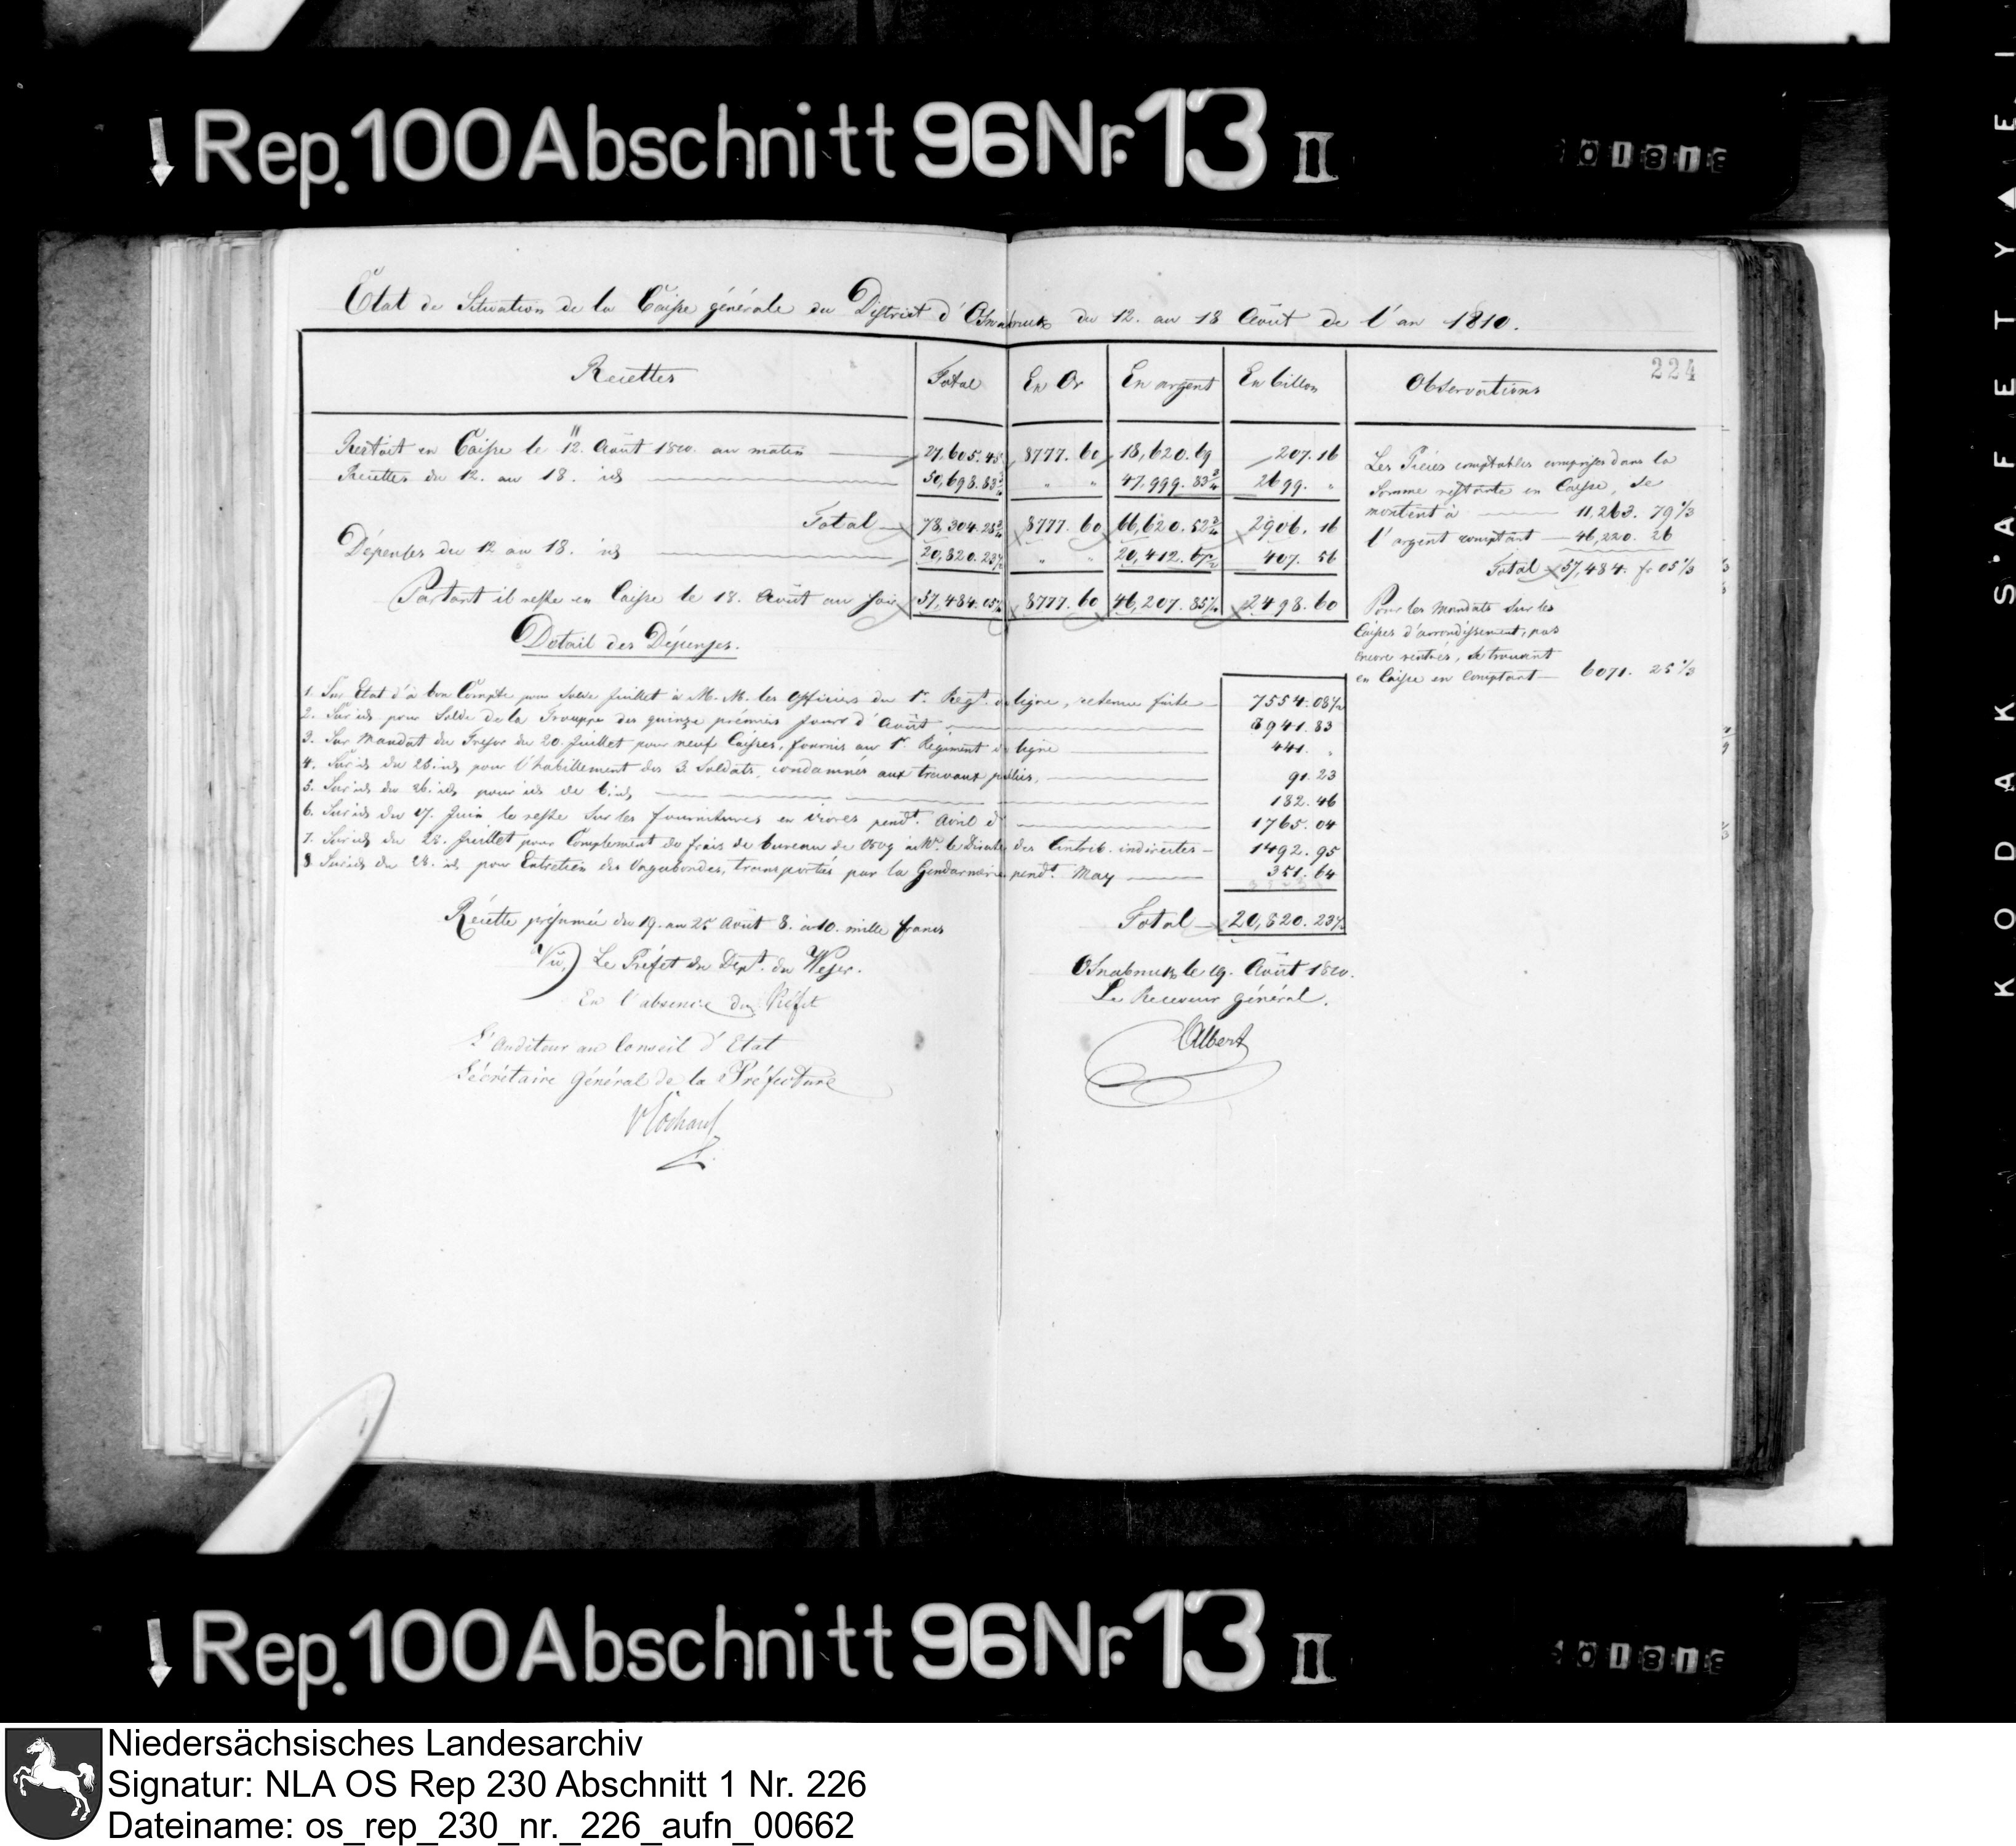 Rep. 100 Abschnitt 96 Nr. 13 II
Etat de Situation de la Caisse générale du District d'Osnabruck du 12. au 18 Août de l'an 1810.
224
Recettes Total En Or En argent En billon Observations
Restoit en Caisse le 12. Août 1810. au matin 27,605. 45 8777. 60 18,620. 69 207. 16
Recettes du 12. au 18. id 50,698. 83 3/4 " " 47,999. 83 3/4 2699. "
Total 78,304. 28 3/4 8777. 60 66,620. 52 3/4 2906. 16
Dépenses du 12 au 18. id 20,820. 23 " " 20,412. 67 407. 56
Partant il reste en Caisse le 18. Août au soir 57,484. 05 8777. 60 46,207. 85 2498. 60
Les Pièces comptables comprises dans la
Somme restante en Caisse, se
montent à 11,263. 79 1/3
l'argent comptant 46,220. 26
Total 57,484. fr 05 1/3
Pour les Mandats sur les
Caisses d'arrondissement, pas
encore rentrés, se trouvent
en Caisse en comptant 6071. 25 1/3
Detail des Dépenses.
1. Sur Etat d'à bon Compte pour Solde Juillet à M. M. les Officiers du 1r. Regt. de ligne, retenue faite 7554. 08
2. Sur id pour Solde de la Trouppe des quinze prémiers jours d'Août 8941. 83
3. Sur Mandat du Tresor du 20. Juillet pour neuf Caisses, fournis au 1r. Régiment de ligne 441. "
4. Sur id du 26. id pour l'habillement des 3. Soldats, condamnés aux travaux publics, 91. 23
5. Sur id du 26. id, pour id de 6. id, 182. 46
6. Sur id du 17. Juin le reste sur les fournitures en vivres pendt. Avril dr 1765. 04
7. Sur id du 28. Juillet pour Complement de frais de bureau de 1809 à Mr. le Direct. des Contrib. indirectes 1492. 95
8. Sur id du 28. id, pour Entretien des Vagabondes, transportés par la Gendarmerie pendt. May 351. 64
Total 20,820. 23
Récette présumée du 19. au 25 Août 8. à 10. mille francs
Vu) Le Préfet du Dept. du Weser.
En l'absence du Préfet
L'Auditeur au Conseil d'Etat
Sécrétaire Général de la Préfecture
Osnabruck le 19. Août 1810.
Le Receveur général.
Albert
Rep. 100 Abschnitt 96 Nr. 13 II
KODAK S'AFETY
Niedersächsisches Landesarchiv
Signatur: NLA OS Rep 230 Abschnitt 1 Nr. 226
Dateiname: os_rep_230_nr._226_aufn_00662